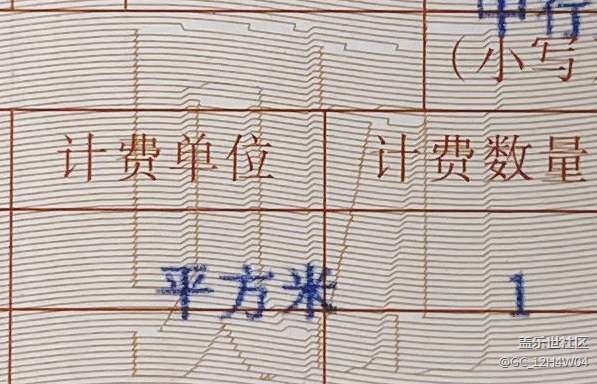 中行
(小写)
计费单位 计费数量
平方米 1
盖乐世社区
@GC_12H4W04